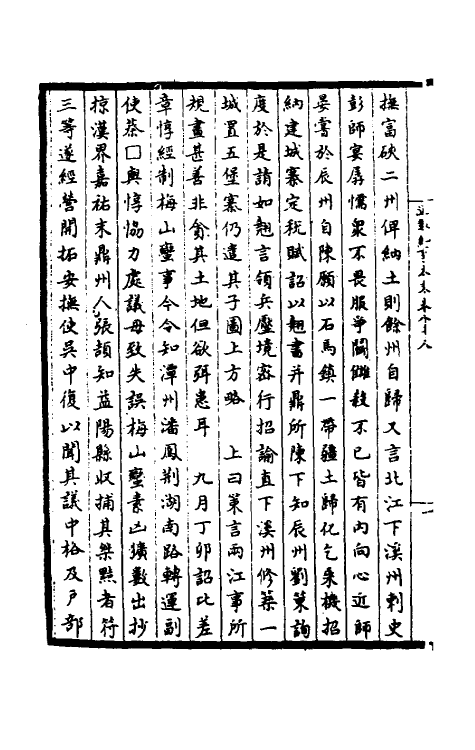 撫富砍二州俾納土則餘州自歸又言北江下溪州刺史
彭師宴孱懦衆不畏服爭鬬讎殺不已皆有内向心近師
晏嘗於辰州自陳願以石馬鎮一帶疆土歸化乞乘機招
納建城寨定稅賦詔以翹書并鼎所陳下知辰州劉策詢
度於是請如翹言領兵壓境密行招諭直下溪州修築一
城置五堡寨仍遣其子圖上方略　上曰策言兩江事所
規畫甚善非貪其土地但欲弭患耳　九月丁卯詔比差
章惇經制梅山蠻事今令知潭州潘夙荆湖南路轉運副
使蔡□與惇恊力處議毋致失誤梅山蠻素凶獷數出抄
掠漢界嘉祐末鼎州人張頡知益陽縣收捕其桀黠者符
三等遂經營開拓安撫使吳中復以聞其議中格及户部